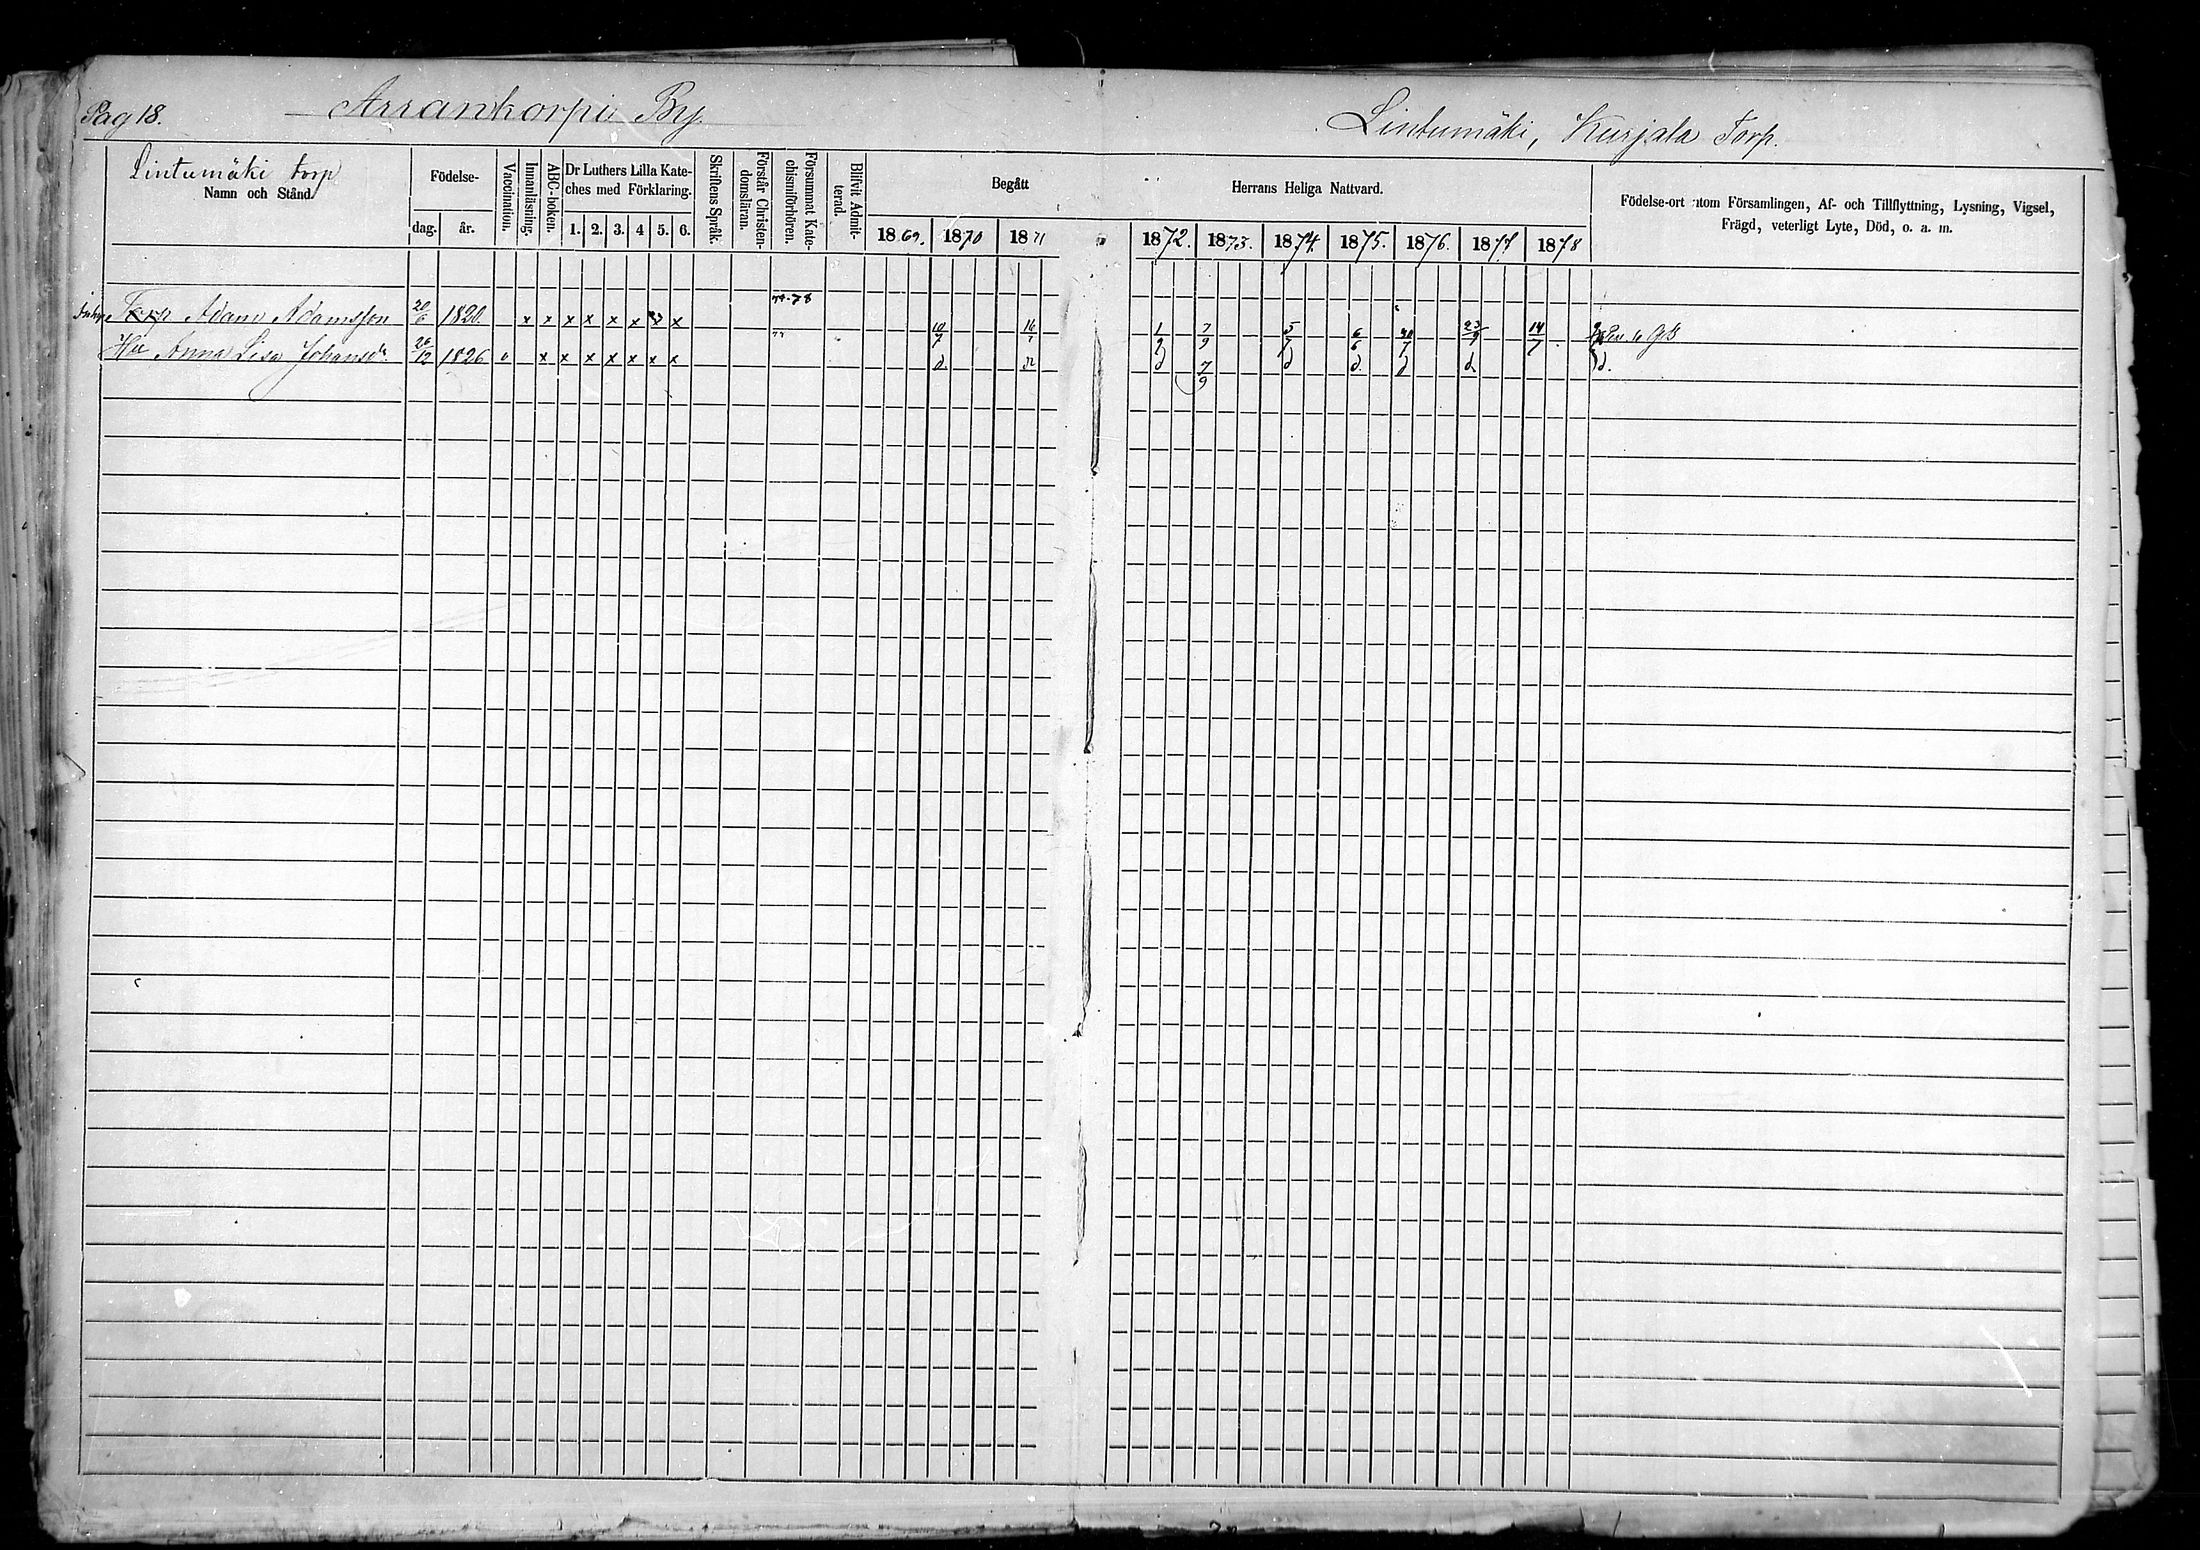 Pag 18. Arrankorpi By.
Lintumäki, Kurjala Torp.
Lintumäki torp
Namn och Stånd.
Födelse-
dag. år.
Vaccination.
Innanläsning.
ABC-boken.
Dr Luthers Lilla Kate-
ches med Förklaring.
1. 2. 3. 4 5. 6.
Skriftens Språk.
Förstår Christen-
domsläran.
Försummat Kate-
chismiförhören.
Blifvit Admit-
terad.
Begått Herrans Heliga Nattvard.
1869. 1870 1871 1872. 1873. 1874. 1875. 1876. 1877 1878
Födelse-ort utom Församlingen, Af- och Tillflyttning, Lysning, Vigsel,
Frägd, veterligt Lyte, Död, o. a. m.
74-78
Torp Adam Adamsson 20/6 1820. x x x x x x x x 77 10/7 16/7 1/9 7/9 5/7 6/6 30/7 23/9 14/7
Hu Anna Lisa Johansdr 26/12 1826 v x x x x x x x d. d d 7/9 d d. d d. d.